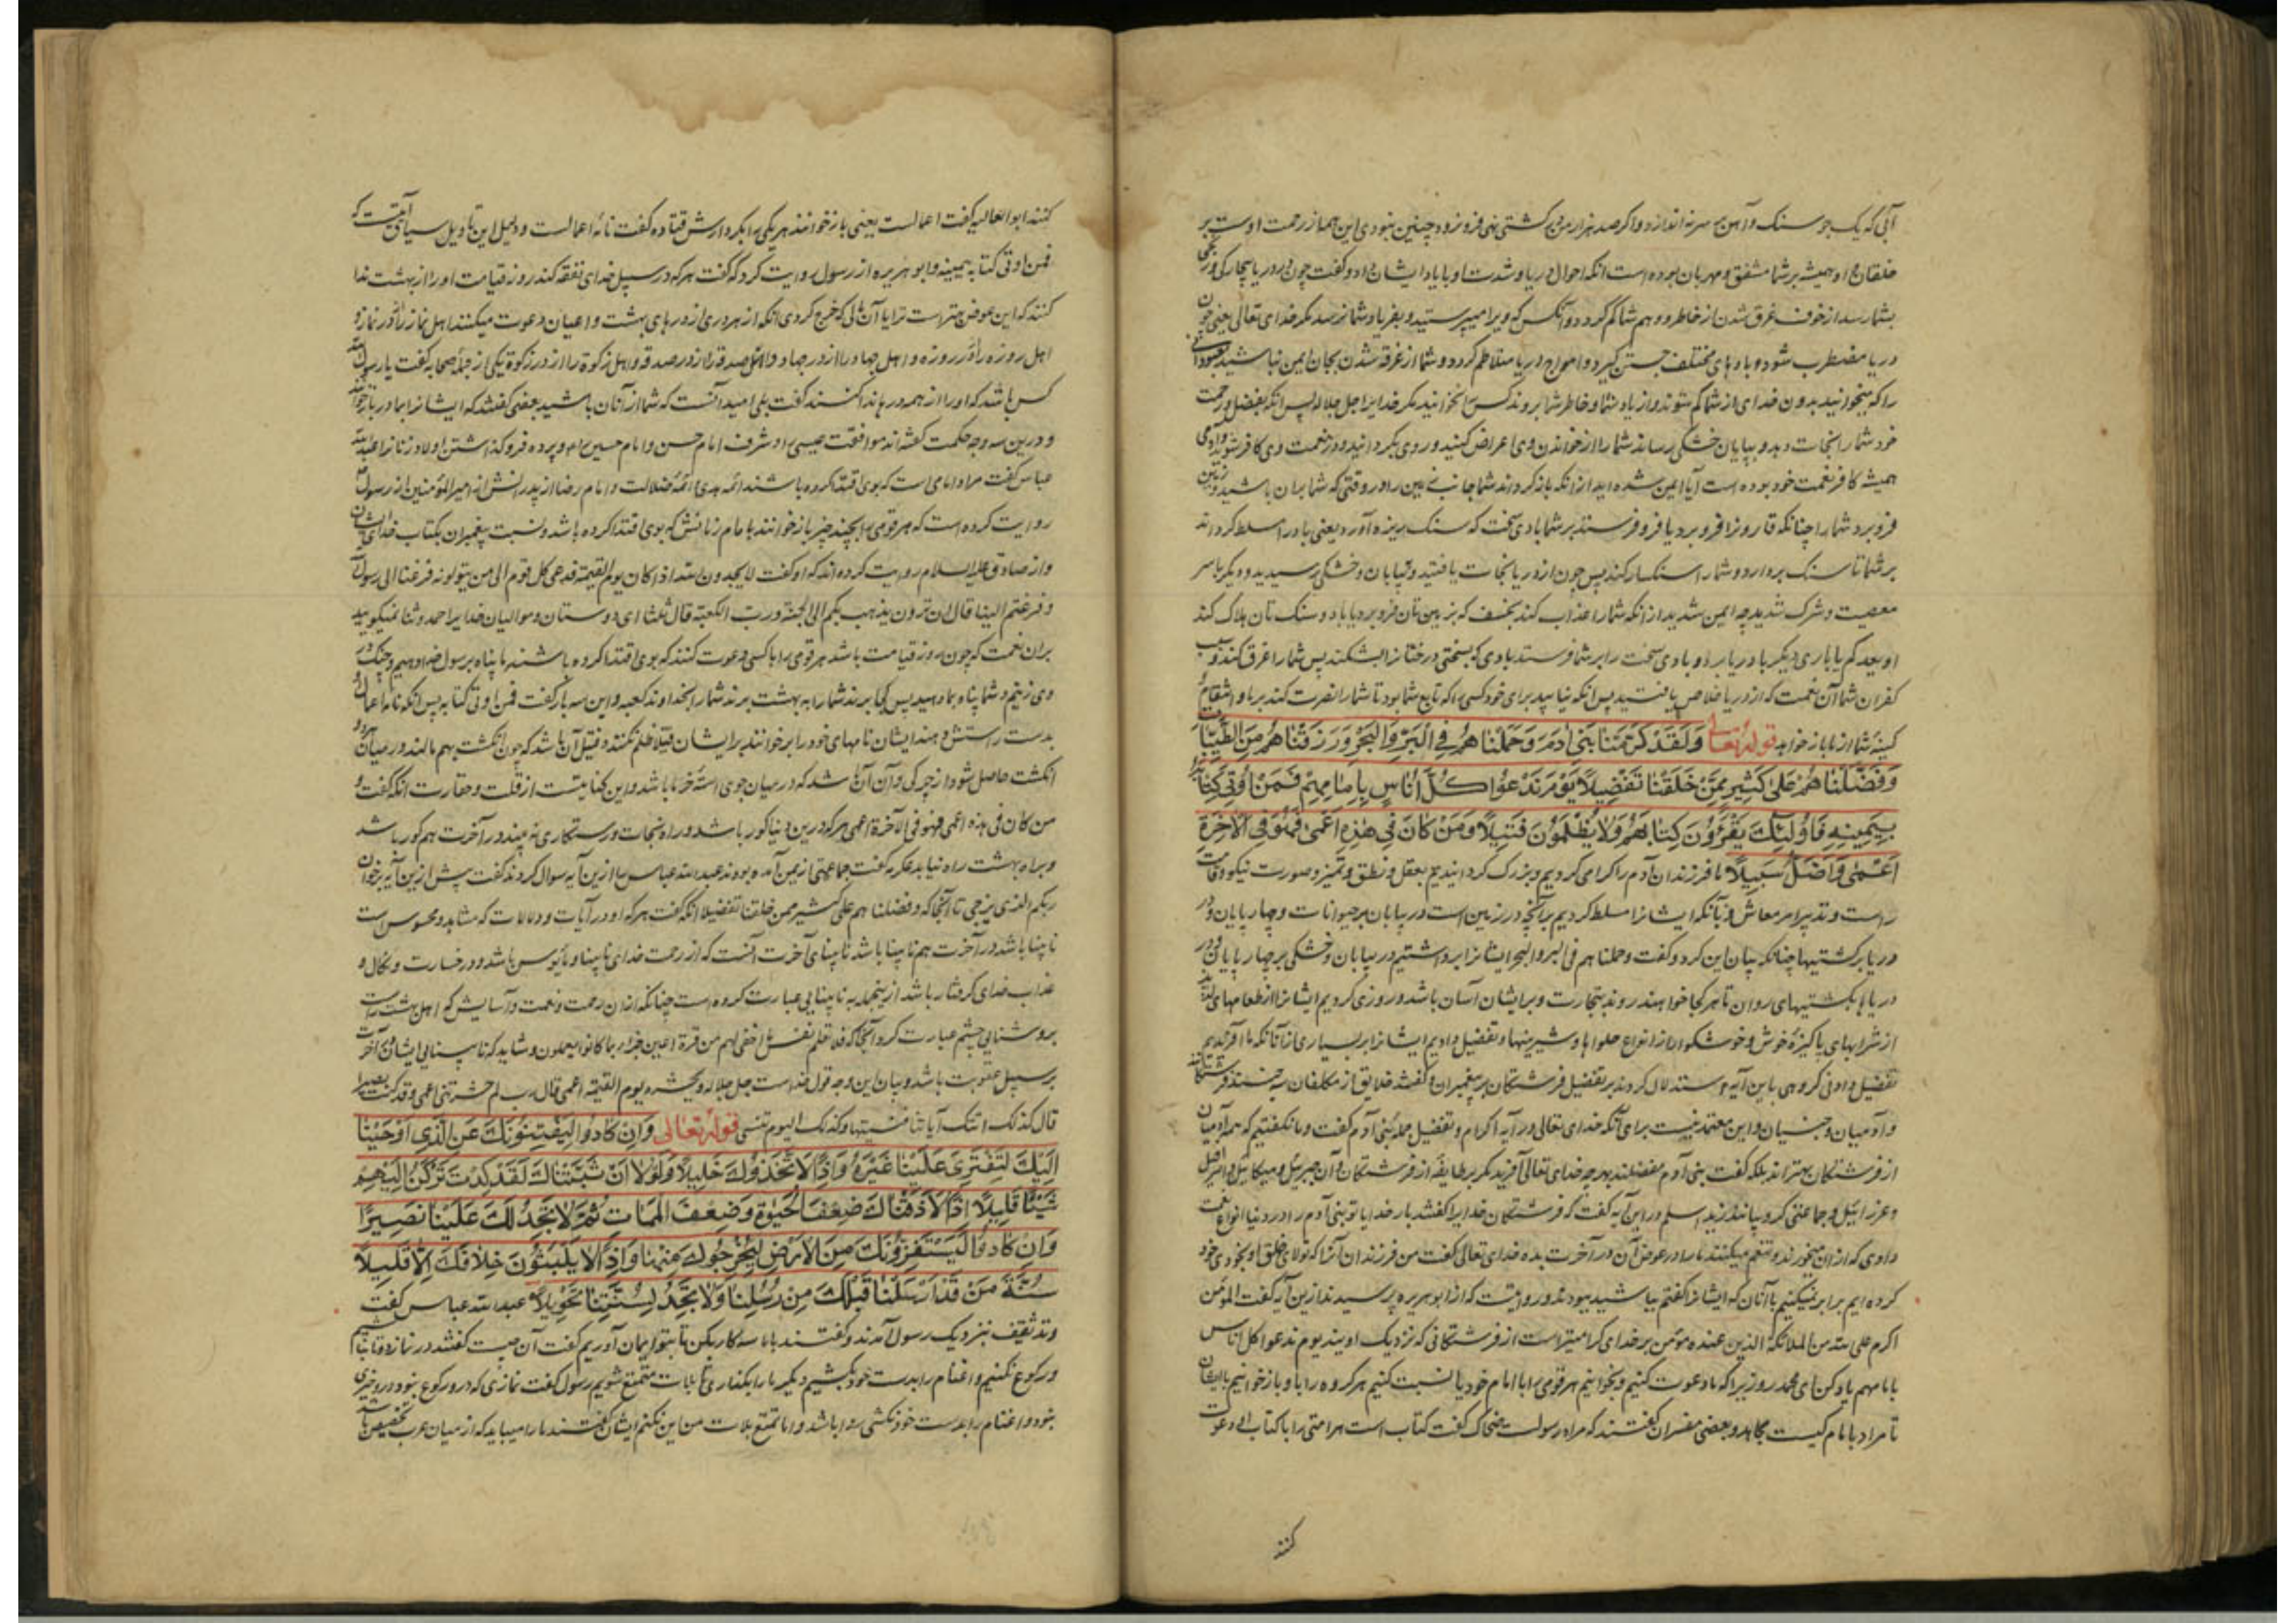 آبی که یک جو سنک و آهن بر سر نه اندازد و اکر صد هزار من در کشتی نهی فرو نرود چنین نبودی این همه از رحمت اوست بر
خلقان و او همیشه بر شما مشفق و مهربان بوده است انکه احوال دریا و شدت او بایاد ایشان داد و کفت چون در دریا بیچارکی و رنجی
بشما رسد از خوف غرق شدن از خاطر و وهم شما کم کردد و آنکس که ویرا میپرستید و بفریاد شما نرسد مکر خدای تعالی یعنی چون
دریا مضطرب شود و بادهای مختلف جستن کیرد و امواج دریا متلاطم کردد و شما از غرقه شدن بجان ایمن نباشید معبودانی
را که میخوانید بدون خدای از شما کم شوند و از یاد شما و خاطر شما بروند کس را نخوانید مکر خدایرا جل جلاله پس انکه بفضل و رحمت
خود شما را نجات دهد و ببیابان خشکی رساند شما را از خواندن وی اعراض کنید و روی بکردانید و در نعمت وی کافر شوید و آدمی
همیشه کافر نعمت خود بوده است آیا ایمن شده اید از انکه باز کرداند شما جانب زمین را در وقتی که شما بران باشید و زمین
فرو برد شما را چنانکه قارونرا فرو برد یا فرو فرستد بر شما بادی سخت که سنک ریزه آورد یعنی باد را مسلط کرداند
بر شما تا سنک بردارد و شما را سنکسار کند پس چون از دریا نجات یافتید و ببیابان و خشکی رسیدید و دیکر باسر
معصیت و شرک شدید چه ایمن شدید از انکه شما را عذاب کند بخسف که بزمین تان فرو برد یا باد و سنک تان هلاک کند
او یعید کم یا باری دیکر با دریا برد و بادی سخت را بر شما فرستد بادی که بسختی درختانرا بشکند پس شما را غرق کند و بسبب
کفران شما آن نعمت که از دریا خلاص یافتید پس انکه نیابید برای خود کسی را که تابع شما بود تا شما را نصرت کند بر ما و انتقام
کینه شما از ما باز خواهد قوله تعالی وَلَقَدْ كَرَّمْنَا بَنِي آدَمَ وَحَمَلْنَاهُمْ فِي الْبَرِّ وَالْبَحْرِ وَرَزَقْنَاهُمْ مِنَ الطَّيِّبَاتِ
وَفَضَّلْنَاهُمْ عَلَىٰ كَثِيرٍ مِمَّنْ خَلَقْنَا تَفْضِيلًا يَوْمَ نَدْعُوا كُلَّ أُنَاسٍ بِإِمَامِهِمْ فَمَنْ أُوتِيَ كِتَابَهُ
بِيَمِينِهِ فَأُولَٰئِكَ يَقْرَؤُنَ كِتَابَهُمْ وَلَا يُظْلَمُونَ فَتِيلًا وَمَنْ كَانَ فِي هَٰذِهِ أَعْمَىٰ فَهُوَ فِي الْآخِرَةِ
أَعْمَىٰ وَأَضَلُّ سَبِيلًا ما فرزندان آدم را کرامی کردیم و بزرک کردانیدیم بعقل و نطق و تمیز و صورت نیکو و قامت
راست و تدبیر امر معاش و بآنکه ایشانرا مسلط کردیم بر آنچه در زمین است در بیابان بر حیوانات و چهارپایان و در
دریا بر کشتیها چنانکه بیان این کرد و کفت و حملناهم فی البر و البحر ایشانرا برداشتیم در بیابان و خشکی بر چهارپایان و در
دریا با کشتیهای روان تا هر کجا خواهند روند بتجارت و بر ایشان آسان باشد و روزی کردیم ایشانرا از طعامهای لذیذ
از شرابهای پاکیزهٔ خوش و خوشکوار از انواع حلواها و شیرینیها و تفضیل دادیم ایشانرا بر بسیاری از آنانکه ما آفریدیم
تفضیل دادنی کروهی باین آیه استدلال کردند بر تفضیل فرشتکان بر پیغمبران و کفتند خلایق از مکلفان سه جنسند فرشتکانند
و آدمیان و جنیان و این معتمد نیست برای آنکه خدای تعالی در آیه اکرام و تفضیل جملهٔ بنی آدم کفت و ما نکفتیم که همه آدمیان
از فرشتکان بهتراند بلکه کفت بنی آدم مفضلند بهر چه خدای تعالی آفرید مکر بر طایفهٔ از فرشتکان و آن جبرئیل و میکائیل و اسرافیل
و عزرائیل و جماعتی کروبیانند زید اسلم در این آیه کفت که فرشتکان خدایرا کفتند بار خدایا تو بنی آدم را در دنیا انواع نعمت
دادی که ازان میخورند و تنعم میکنند ما را در عوض آن در آخرت بده خدای تعالی کفت من فرزندان آنرا که تولای خلق او بخودی خود
کرده ایم برابر نمیکنیم با آنان که ایشانرا کفتم بباشید ببودند و روایتست که از ابوهریره پرسیدند ازین آیه کفت المؤمن
اکرم علی الله من الملائکة الذین عنده مؤمن بر خدای کرامیتر است از فرشتکانی که نزدیک اویند یوم ندعوا کل اناس
بامامهم یاد کن ای محمد روزیرا که ما دعوت کنیم و بخوانیم هر قومی را با امام خود یا نسبت کنیم هر کروه را باو بازخوانیم با ایشان
تا مراد بامام کیست مجاهد و بعضی مفسران کفتند که مراد رسولست ضحاک کفت کتاب است هر امتی را با کتاب او دعوت
کنند
کنند ابوالعالیه کفت اعمالست یعنی بازخوانند هر یکی را بکردارش قتاده کفت نامهٔ اعمالست و دلیل این تاویل سیاق آیتست که
فمن اوتی کتابه بیمینه و ابوهریره از رسول روایت کرد که کفت هر که در سبیل خدای نفقه کند روز قیامت او را از بهشت ندا
کنند که این عوض بهتر است ترا یا آن مالی که خرج کردی انکه از هر دری از درهای بهشت داعیان دعوت میکنند اهل نماز را از در نماز و
اهل روزه را از در روزه و اهل جهاد را از در جهاد و اهل صدقه را از در صدقه و اهل زکوة را از در زکوة یکی از جملهٔ صحابه کفت یا رسول الله
کس باشد که او را از همه درها ندا کنند کفت بلی امید آنست که شما از آنان باشید بعضی کفتند که ایشانرا بمادر بازخوانند
و درین سه وجه حکمت کفته اند موافقت عیسی را و شرف امام حسن و امام حسین را و پرده فرو کذاشتن اولاد زنا را عبدالله
عباس کفت مراد امامی است که بوی اقتدا کرده باشند ائمهٔ هدی و ائمهٔ ضلالت و امام رضا از پدرانش از امیرالمؤمنین از رسول
روایت کرده است که هر قومی را بچند چیز بازخوانند بامام زمانش که بوی اقتدا کرده باشد و نسبت پیغمبران بکتاب خدای ایشان
و از صادق علیه السلام روایت کرده اند که او کفت لا یحمدون الله اذا کان یوم القیمة فدعی کل قوم الی من یتولونه فزعنا الی رسول الله
و فزعتم الینا قال این ترون یذهب بکم الی الجنة و رب الکعبة قال ثلثا ای دوستان و موالیان خدایرا حمد و ثنا نمیکویید
بران نعمت که چون روز قیامت باشد هر قومی را باکسی دعوت کنند که بوی اقتدا کرده باشند ما پناه برسول خدا دهیم و چنک در
وی زنیم و شما پناه بما دهید پس کجا برند شما را به بهشت برند شما را بخداوند کعبه و این سه بار کفت فمن اوتی کتابه پس انکه نامهٔ اعمال او
بدست راستش دهند ایشان نامهای خود را برخوانند بر ایشان فتیلا ظلم نکنند و فتیل آن باشد که چون انکشت بهم مالند در میان دو
انکشت حاصل شود از چرکی و آن آن باشد که در میان جوی استهٔ خرما باشد و این کنایتست از قلت و حقارت انکه کفت و
من کان فی هذه اعمی فهو فی الآخرة اعمی هر که درین دنیا کور باشد و راه نجات و رستکاری نه بیند در آخرت هم کور باشد
و براه بهشت راه نیابد عکرمه کفت جماعتی از یمن آمده بودند عبدالله عباس را ازین آیه سوال کردند کفت پیش ازین آیه برخوان
ربکم الذی یزجی تا آنجا که و فضلناهم علی کثیر ممن خلقنا تفضیلا انکه کفت هر که او در آیات و دلالات که مشاهد و محسوس است
نابینا باشد در آخرت هم نابینا باشد نابینای آخرت آنست که از رحمت خدای نابینا و مأیوس باشد و در خسارت و نکال و
عذاب خدای کرفتار باشد ازینجهة به نابینایی عبارت کرده است چنانکه ازان رحمت و نعمت و آسایش که اهل بهشت راست
بروشنایی چشم عبارت کرد آنجا که فلا تعلم نفس ما اخفی لهم من قرة اعین جزاء بما کانوا یعملون و شاید که نابینایی ایشان در آخرت
بر سبیل عقوبت باشد و بیان این وجه قول خداست جل جلاله و نحشره یوم القیمة اعمی قال رب لم حشرتنی اعمی و قد کنت بصیرا
قال کذلک اتتک آیاتنا فنسیتها و کذلک الیوم تنسی قوله تعالی وَإِنْ كَادُوا لَيَفْتِنُونَكَ عَنِ الَّذِي أَوْحَيْنَا
إِلَيْكَ لِتَفْتَرِيَ عَلَيْنَا غَيْرَهُ وَإِذًا لَاتَّخَذُوكَ خَلِيلًا وَلَوْلَا أَنْ ثَبَّتْنَاكَ لَقَدْ كِدْتَ تَرْكَنُ إِلَيْهِمْ
شَيْئًا قَلِيلًا إِذًا لَأَذَقْنَاكَ ضِعْفَ الْحَيٰوةِ وَضِعْفَ الْمَمَاتِ ثُمَّ لَا تَجِدُ لَكَ عَلَيْنَا نَصِيرًا
وَإِنْ كَادُوا لَيَسْتَفِزُّونَكَ مِنَ الْأَرْضِ لِيُخْرِجُوكَ مِنْهَا وَإِذًا لَا يَلْبَثُونَ خِلَافَكَ إِلَّا قَلِيلًا
سُنَّةَ مَنْ قَدْ أَرْسَلْنَا قَبْلَكَ مِنْ رُسُلِنَا وَلَا تَجِدُ لِسُنَّتِنَا تَحْوِيلًا عبدالله عباس کفت
وفد ثقیف بنزدیک رسول آمدند و کفتند با ما سه کار بکن تا بتو ایمان آوریم کفت آن چیست کفتند در نماز دوتا نشویم
و رکوع نکنیم و اغنام را بدست خود نکشیم دیکر ما را بکذاری تا بلات متمتع شویم رسول کفت نمازی که درو رکوع نبود درو خیری
نبود و اغنام را بدست خود نکشی روا باشد و اما تمتع بلات من این نکنم ایشان کفتند ما را میباید که از میان عرب تخصیص